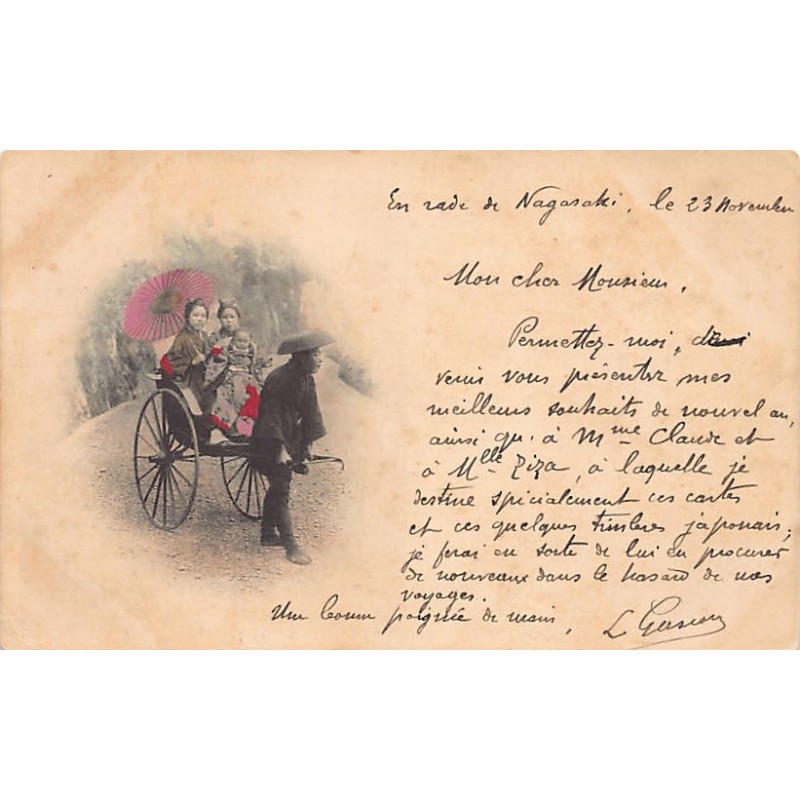 En rade de Nagasaki, le 23 Novembre
Mon cher Monsieur,
Permettez-moi, de
venir vous présenter mes
meilleurs souhaits de nouvel an,
ainsi qu'à Mme Claude et
à Mlle Ziza, à laquelle je
destine spécialement ces cartes
et ces quelques timbres japonais,
je ferai en sorte de lui en procurer
de nouveaux dans le hasard de nos
voyages.
Une bonne poignée de main,
L